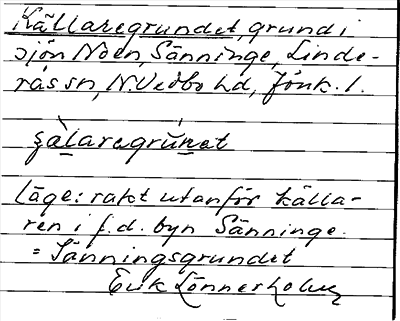 Källaregrundet, grund i
sjön Noen, Sänninge, Linde-
rås sn, N. Vedbo hd, Jönk. l.
ɕàlaregrúnet
Läge: rakt utanför källa-
ren i f.d. byn Sänninge.
= Sänningsgrundet
Erik Lönnerholm